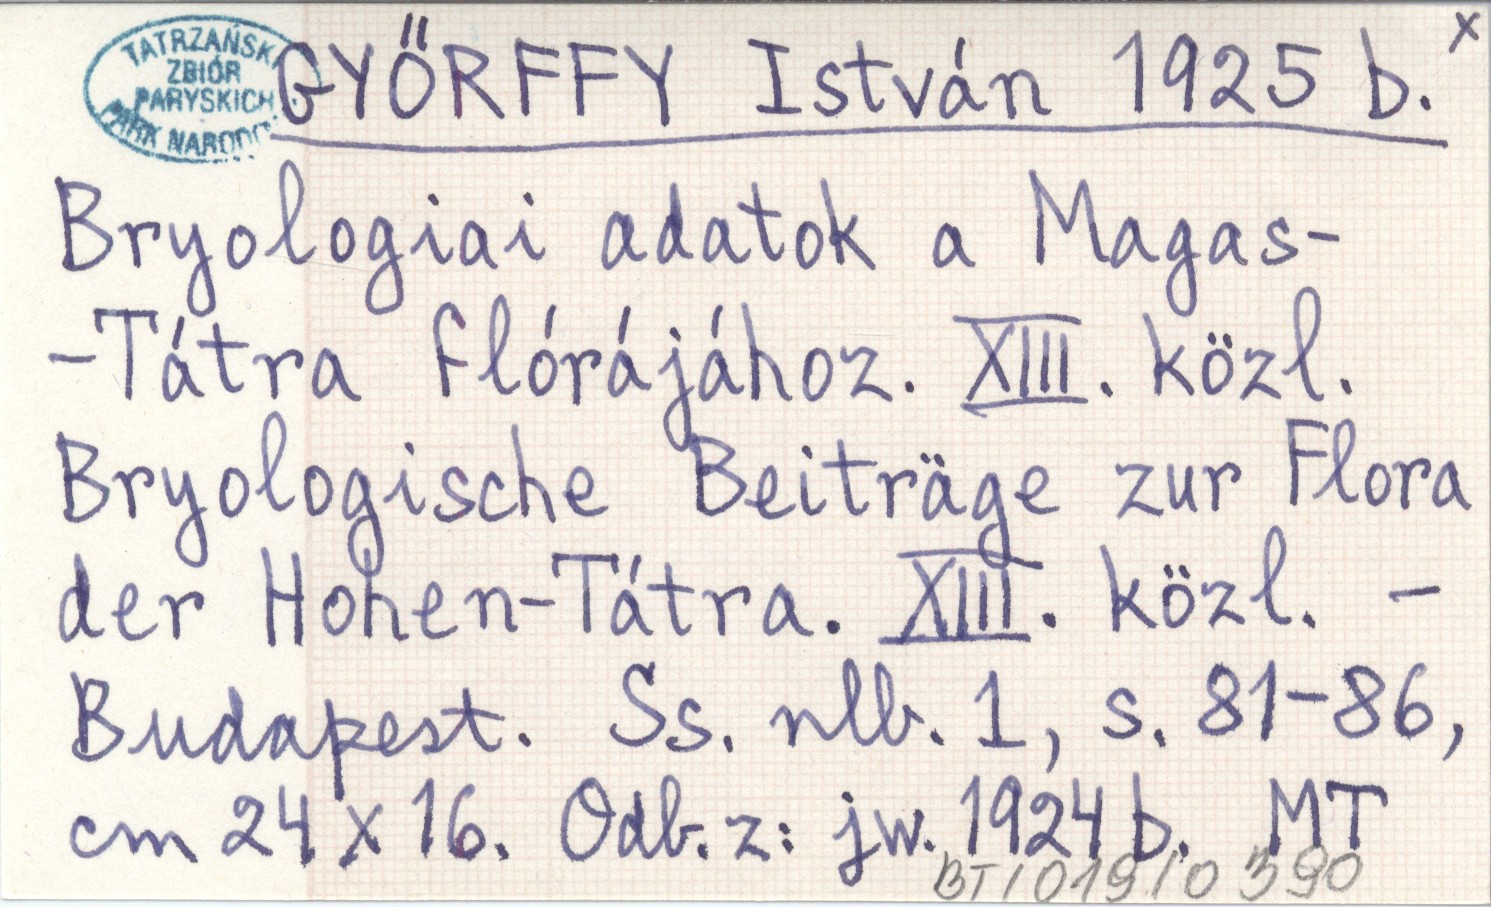 x
TATRZAŃSKI
ZBIÓR
PARYSKICH
PARK NARODO
GYŐRFFY István 1925 b.
Bryologiai adatok a Magas-
-Tátra flórájához. XIII. közl.
Bryologische Beiträge zur Flora
der Hohen-Tátra. XIII. közl. -
Budapest. Ss. nlb. 1, s. 81-86,
cm 24 x 16. Odb. z: jw. 1924 b. MT
BT/019/0 390